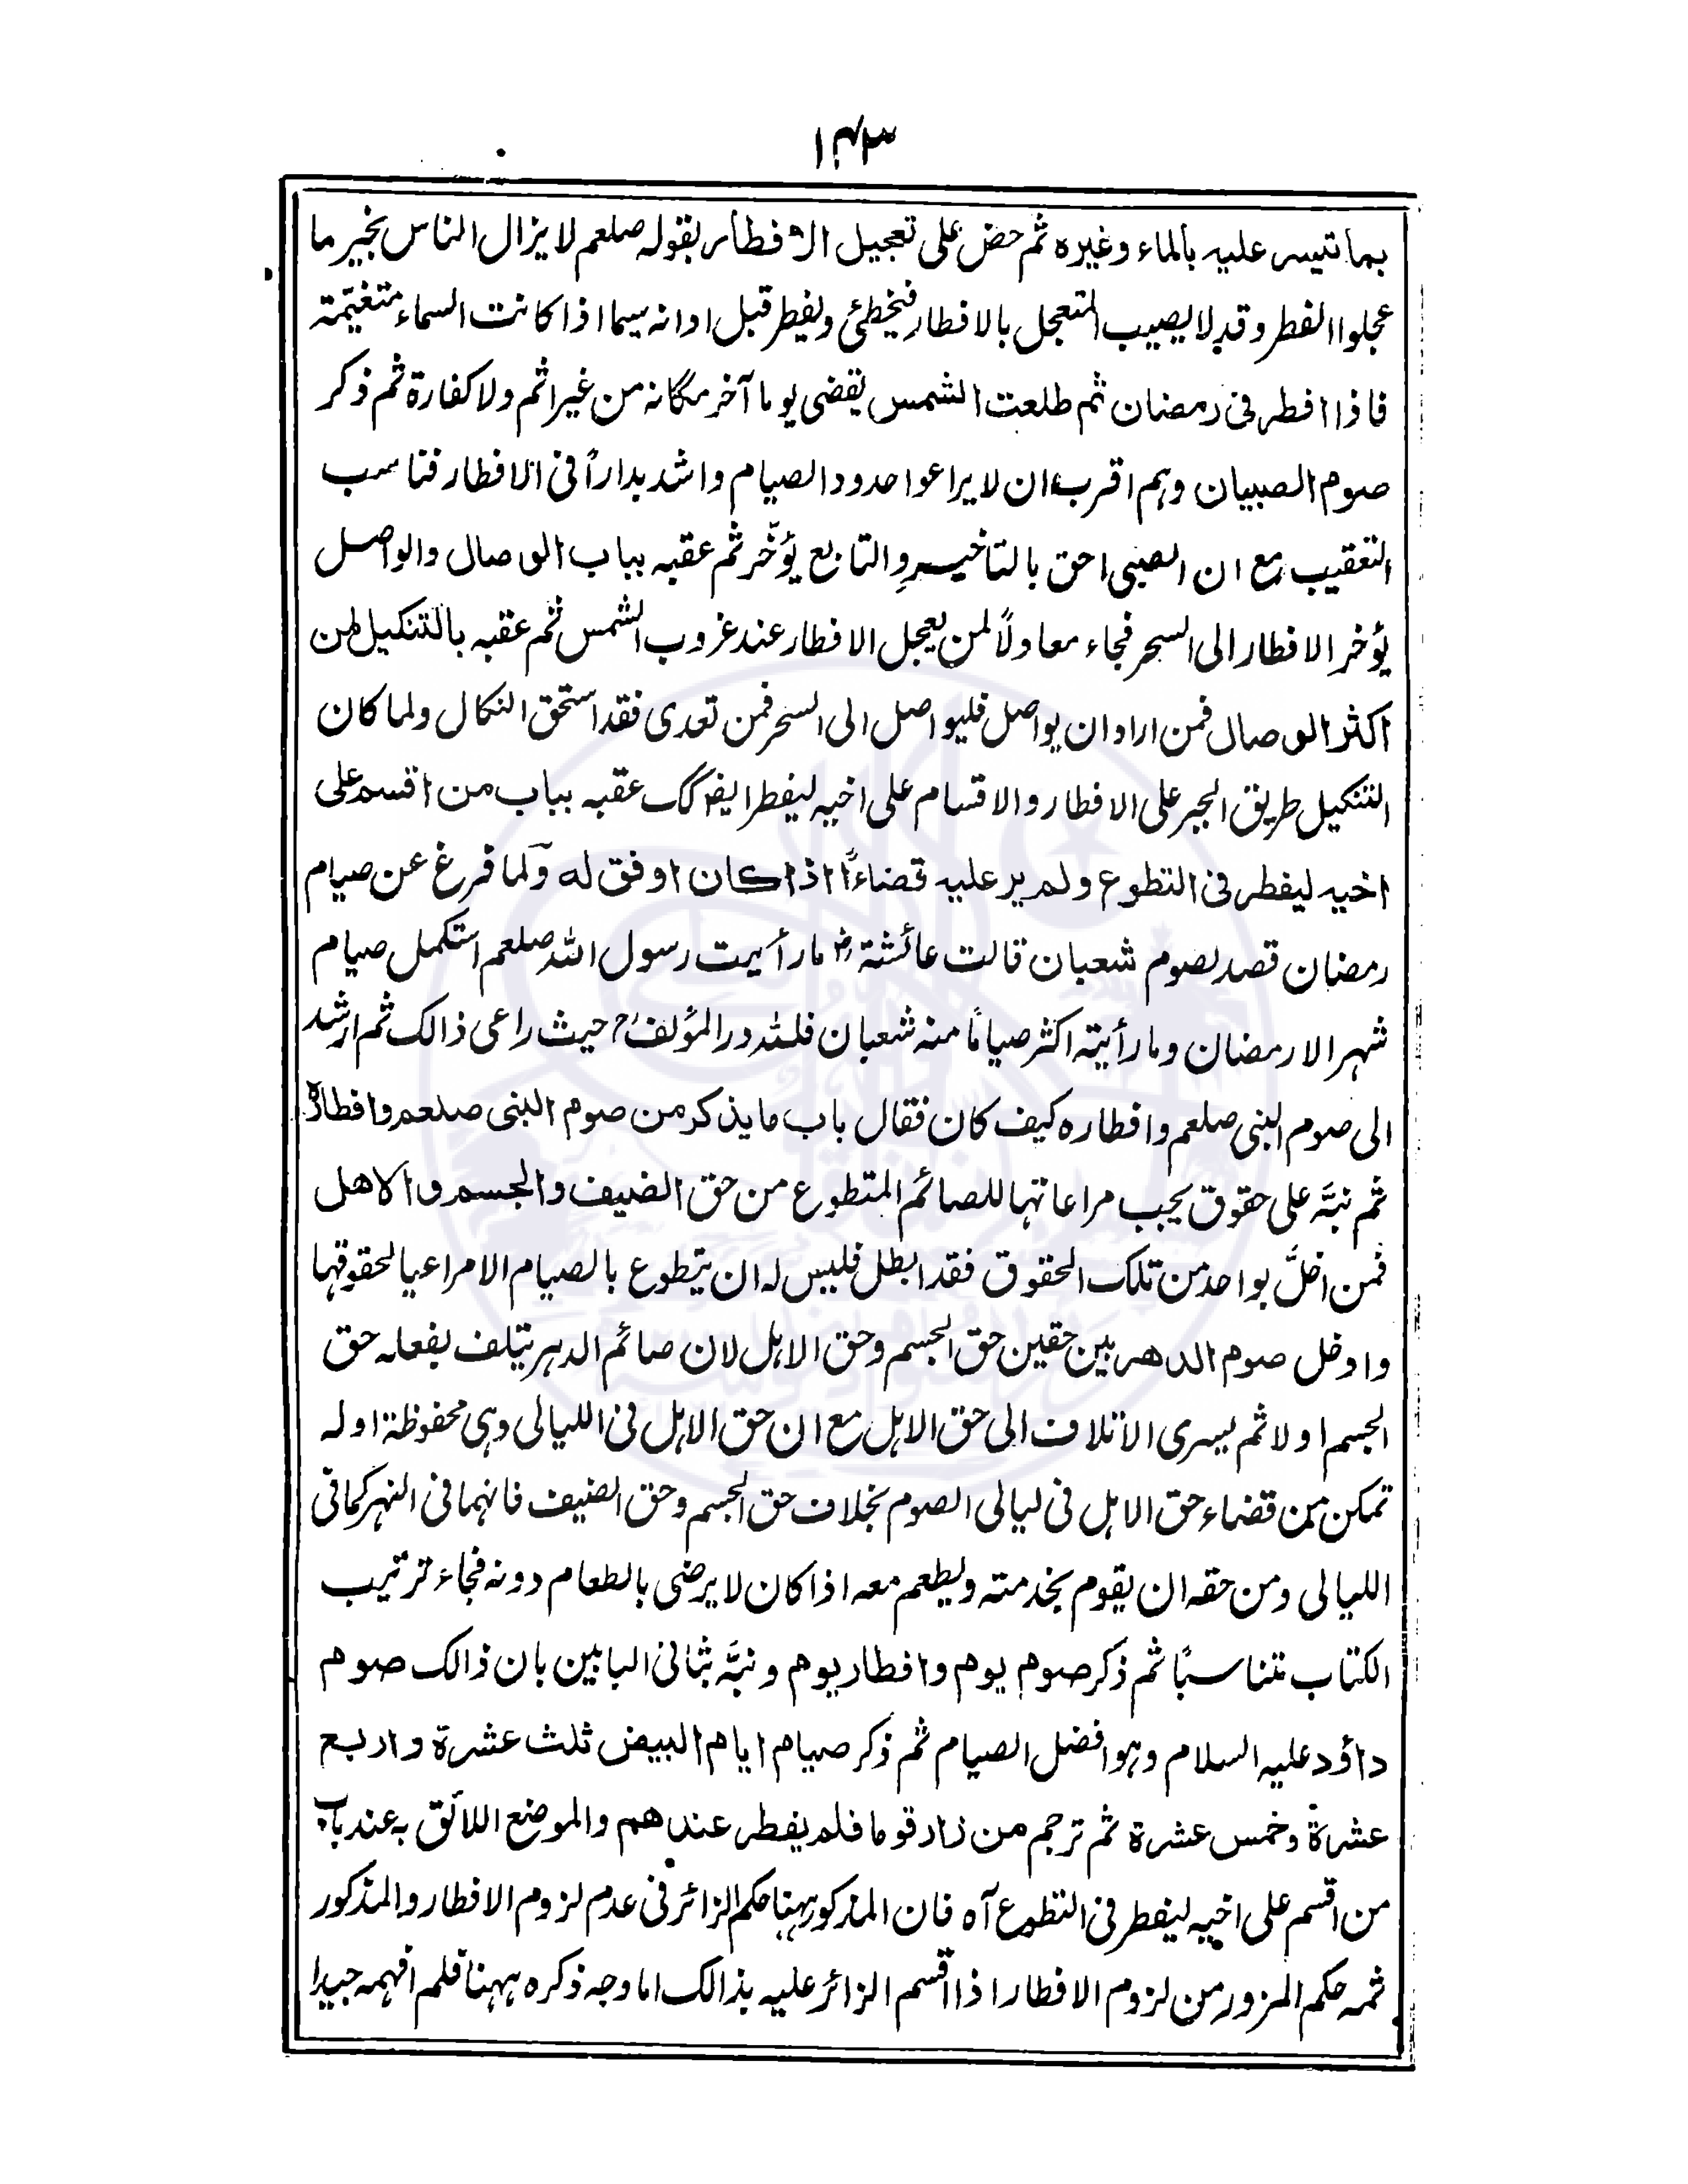 ۱۴۳
بما تيسر عليه بالماء وغيره ثم حض على تعجيل الافطار بقوله صلعم لا يزال الناس بخير ما
عجلوا الفطر وقد لا يصيب المتعجل بالافطار فيخطئ ويفطر قبل اوانه سيما اذا كانت السماء متغيّمة
فاذا افطر فى رمضان ثم طلعت الشمس يقضى يوما آخر مكانه من غير اثم ولا كفارة ثم ذكر
صوم الصبيان وهم اقرب ان لا يراعوا حدود الصيام واشد بداراً فى الافطار فناسب
التعقيب مع ان الصبى احق بالتاخير والتابع يؤخّر ثم عقبه بباب الوصال والواصل
يؤخر الافطار الى السحر فجاء معادلاً لمن يعجل الافطار عند غروب الشمس ثم عقبه بالتنكيل لمن
اكثر الوصال فمن اراد ان يواصل فليواصل الى السحر فمن تعدى فقد استحق النكال ولما كان
التنكيل طريق الجبر على الافطار والاقسام على اخيه ليفطر ايضا كك عقبه بباب من اقسم على
اخيه ليفطر فى التطوع ولم ير عليه قضاءاً اذا كان اوفق له ولما فرغ عن صيام
رمضان قصد لصوم شعبان قالت عائشةؓ ما رأيت رسول الله صلعم استكمل صيام
شهر الا رمضان وما رأيته اكثر صياما منه شعبان فلله در المؤلفؒ حيث راعى ذالك ثم ارشد
الى صوم النبى صلعم وافطاره كيف كان فقال باب ما يذكر من صوم النبى صلعم وافطاره
ثم نبَّه على حقوق يجب مراعاتها للصائم المتطوع من حق الضيف والجسم والاهل
فمن اخلَّ بواحد من تلك الحقوق فقد ابطل فليس له ان يتطوع بالصيام الا مراعيا لحقوقها
وادخل صوم الدهر بين حقين حق الجسم وحق الاهل لان صائم الدهر يتلف بفعله حق
الجسم اولا ثم يسرى الاتلاف الى حق الاهل مع ان حق الاهل فى الليالى وهى محفوظة اوله
تمكن من قضاء حق الاهل فى ليالى الصوم بخلاف حق الجسم وحق الضيف فانهما فى النهر كما فى
الليالى ومن حقه ان يقوم بخدمته ويطعم معه اذا كان لا يرضى بالطعام دونه فجاء ترتيب
الكتاب متناسبًا ثم ذكر صوم يوم وافطار يوم ونبَّه بثانى البابين بان ذالك صوم
داؤد عليه السلام وهو افضل الصيام ثم ذكر صيام ايام البيض ثلث عشرة واربع
عشرة وخمس عشرة ثم ترجم من زار قوما فلم يفطر عندهم والموضع اللائق به عند باب
من اقسم على اخيه ليفطر فى التطوع آه فان المذكور ههنا حكم الزائر فى عدم لزوم الافطار والمذكور
ثمه حكم المزور من لزوم الافطار اذا اقسم الزائر عليه بذالك اما وجه ذكره ههنا فلم افهمه جيدا